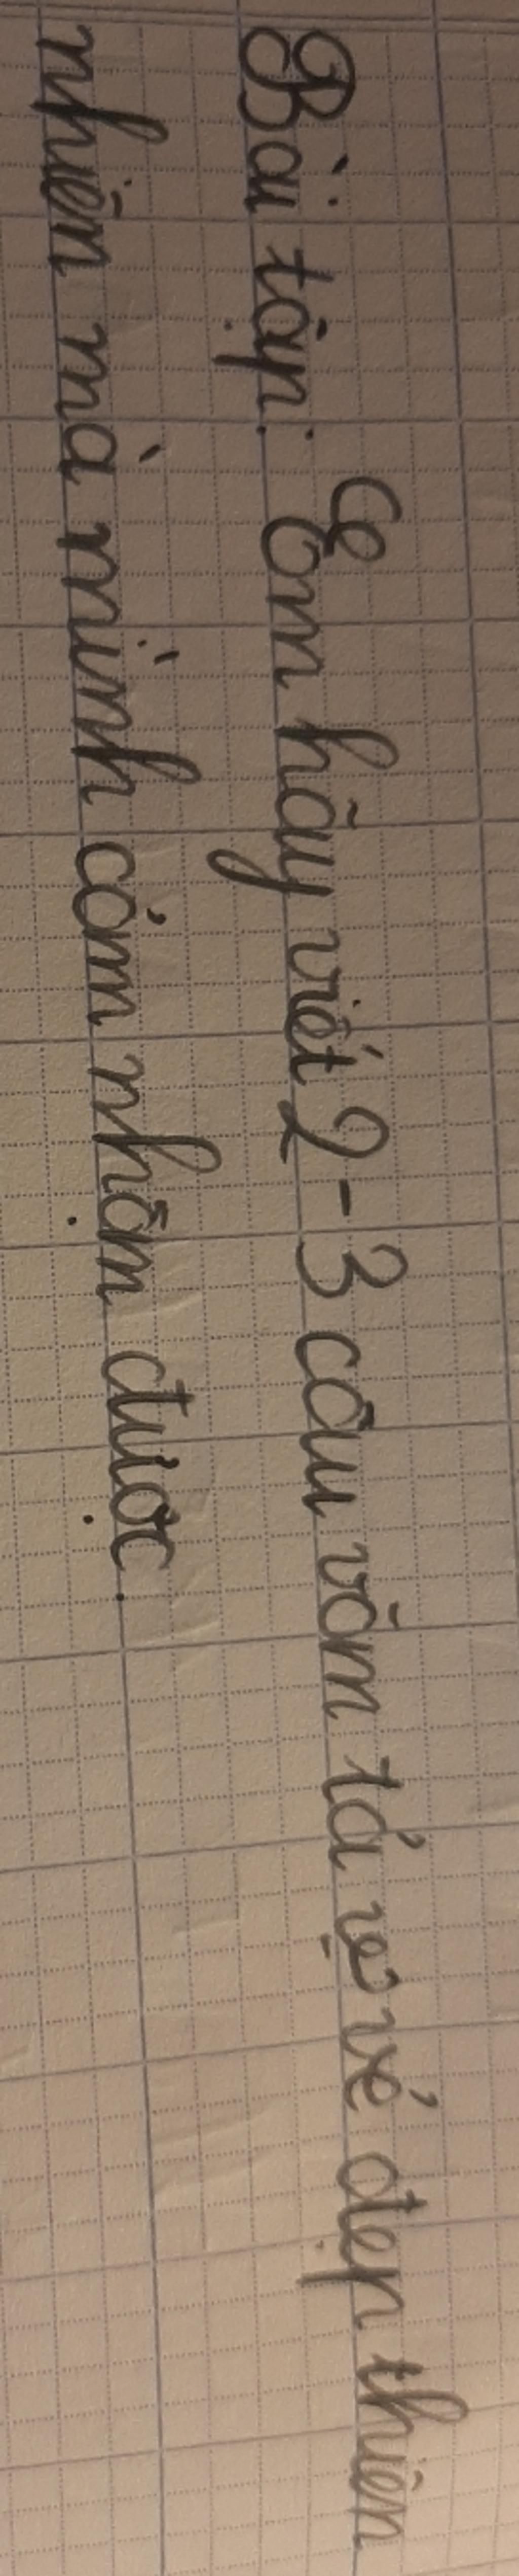 Bài tập: Em hãy viết 2-3 câu văn tả vẻ đẹp thiên
nhiên mà mình cảm nhận được.